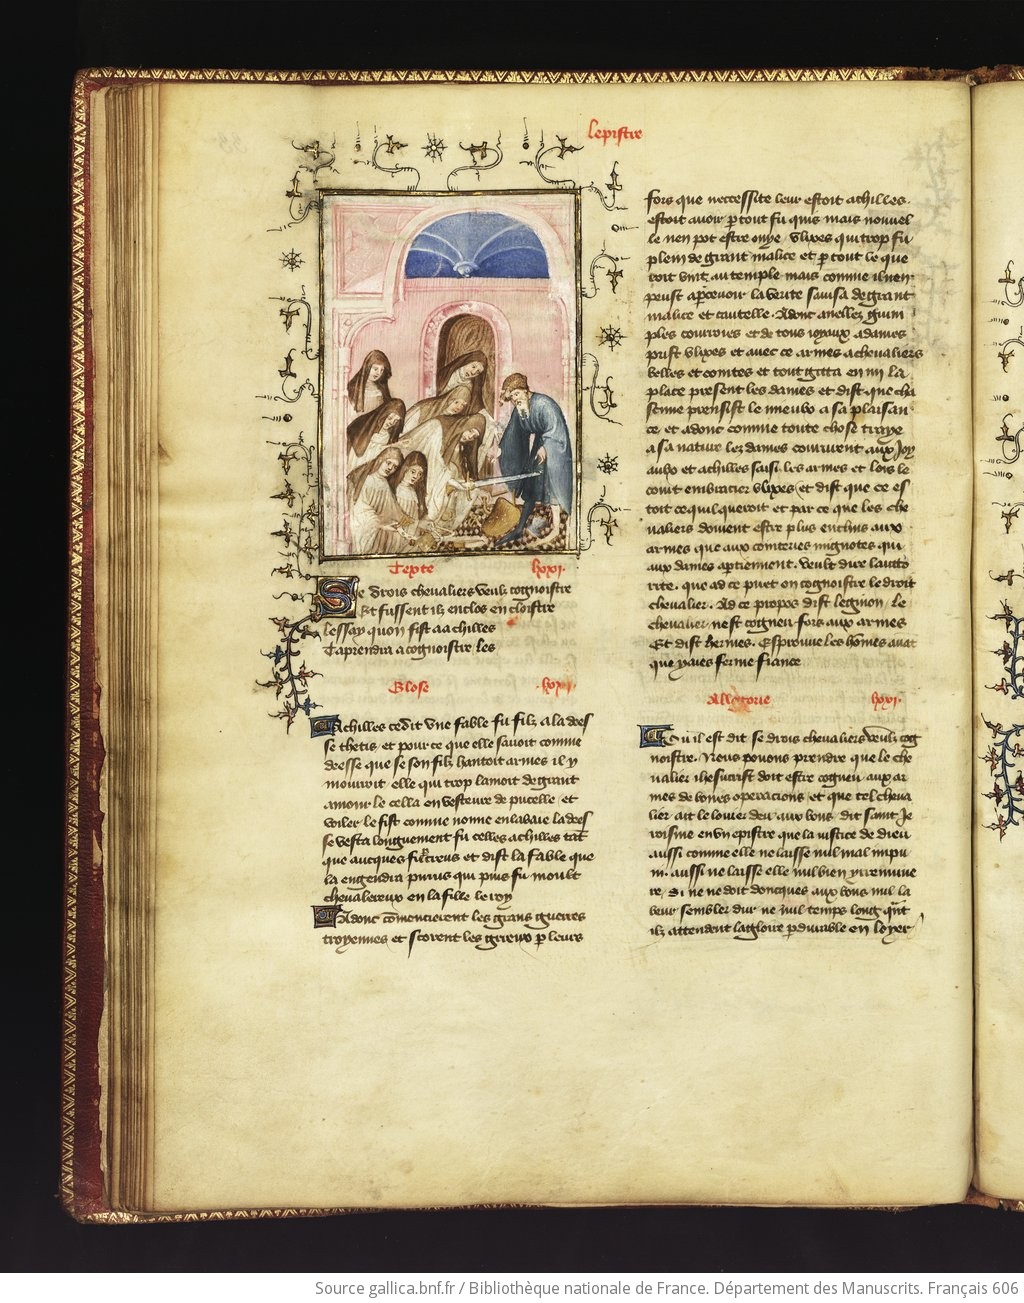 lepistre
Texte lxxi.
Se drois cheualiers veulz cognoistre
Et fussent ilz enclos en cloistre
lessay quon fist a achilles
Taprendra a cognoistre les
Glose lxxi.
Achilles ce dit vne fable fu filz a la deesse
se thetis et pour ce que elle sauoit comme
deesse que se son filz hantoit armes il y
mourroit elle qui trop lamoit de grant
amour le cella en vesteure de pucelle et
voiler le fist comme nonne en labaie la dees
se vesta longuement fu celles achilles tant
que aucques fu creus et dist la fable que
la engendra pirrus qui puis fu moult
cheualereux en la fille le roy
Adonc comencierent les grans guerres
troyennes et sceurent les grieux par leurs
fors que neccessite leur estoit achilles.
estoit auoir par tout fu quis mais nouuel
le nen pot estre ouye Vlixes qui trop fu
plein de grant malice et par tout le que
roit vint au temple mais comme il nen
peust apperceuoir la verite sauisa de grant
malice et cautelle. Adonc anellez guim
ples courroies et de tous ioyaux a dames
prist vlixes et auec ce armes a cheualiers
belles et cointes et tout gitta en mi la
place present les dames et dist que cha
scune prensist le mieulx a sa plaisan
ce et adonc comme toute chose traye
a sa nature lez dames coururent aux Joy
aulx et achilles saisi les armes et lors le
court embracier vlixes et dist que ce es
toit ce quil queroit et par ce que les che
ualiers doiuent estre plus enclins aux
armes que aux cointeries mignotes qui
aux dames aptiennent. veult dire laucto
rite. que ad ce puet on cognoistre le droit
cheualier. Ad ce propos dist leginon. le
cheualier nest cogneu fors aux armes
Et dist hermes. Esprouue les hommes auant
que yaies ferme fiance
Allegorie lxxi.
Ou il est dit se drois cheualiers veulz cog
noistre. Nous pouons prendre que le che
ualier ihesucrist doit estre cogneu aux ar
mes de bones operacions et que tel cheua
lier ait le louier deu aux bons dit saint Je
roisme en vn epistre que la iustice de dieu
aussi comme elle ne laisse nul mal impu
ni. aussi ne laisse elle nul bien yrremune
re. Si ne ne doit doncques aux bons nul la
beur sembler dur ne nul temps long quant
ilz attendent la gloire pardurable en loyer
Source gallica.bnf.fr / Bibliothèque nationale de France. Département des Manuscrits. Français 606